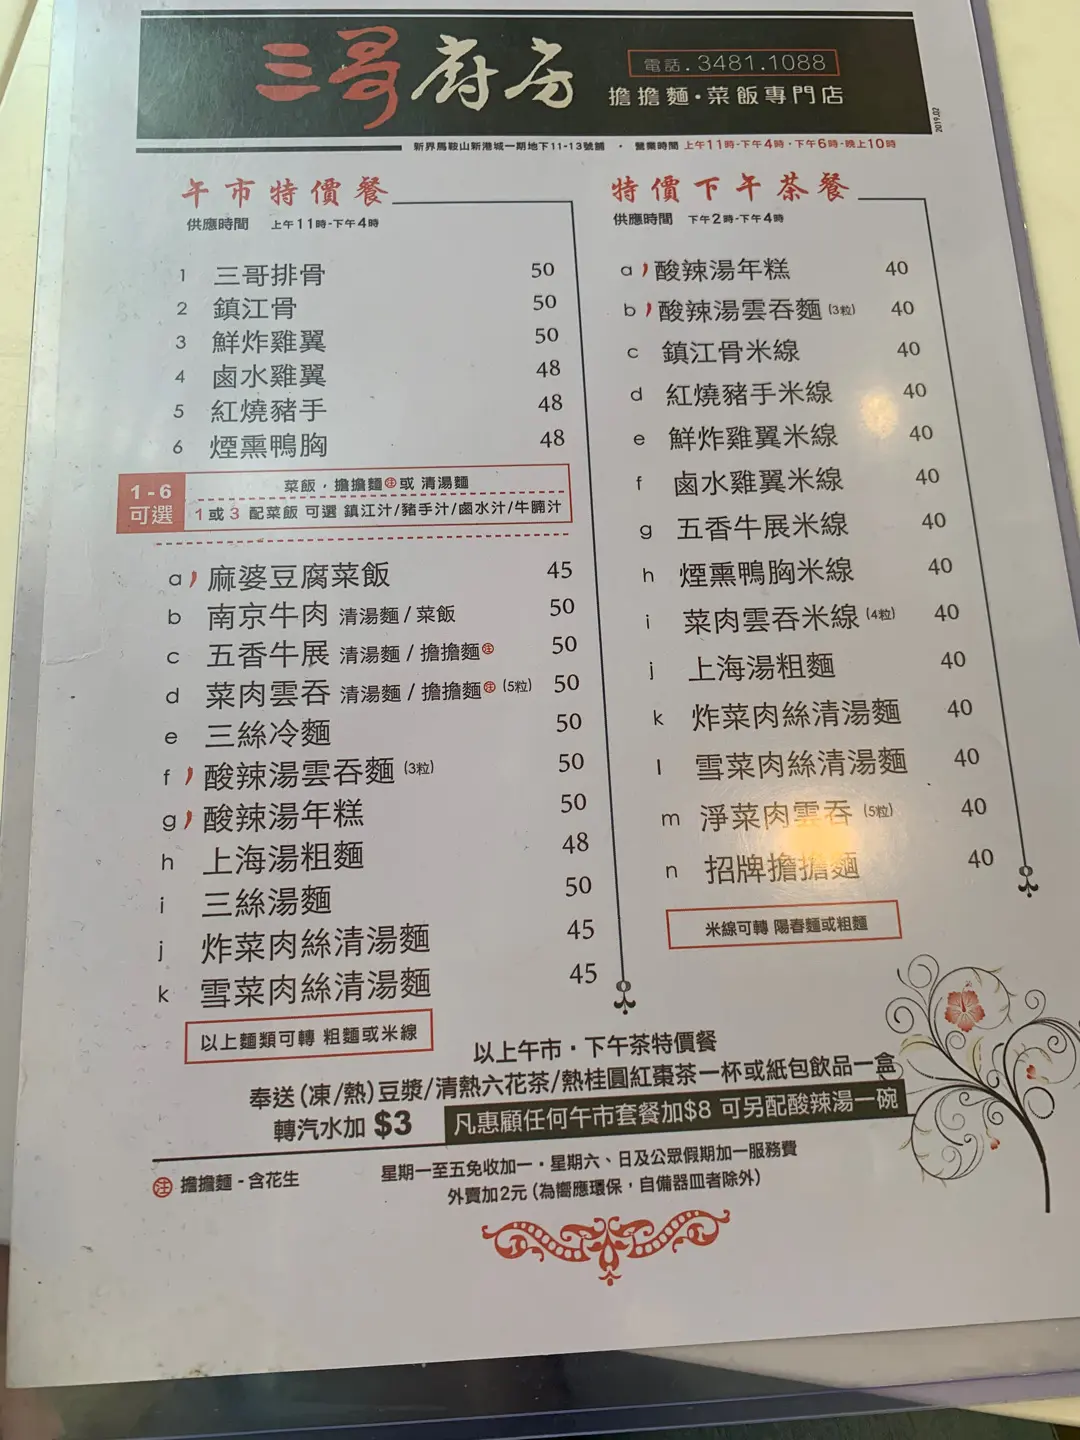 三哥廚房
電話.3481.1088
擔擔麵·菜飯專門店
2019.02
新界馬鞍山新港城一期地下11-13號舖 · 營業時間 上午11時-下午4時·下午6時-晚上10時
午市特價餐
供應時間 上午11時-下午4時
1 三哥排骨 50
2 鎮江骨 50
3 鮮炸雞翼 50
4 鹵水雞翼 48
5 紅燒豬手 48
6 煙熏鴨胸 48
1-6
可選
菜飯，擔擔麵㊟或 清湯麵
1 或 3 配菜飯 可選 鎮江汁/豬手汁/鹵水汁/牛腩汁
a 麻婆豆腐菜飯 45
b 南京牛肉 清湯麵 / 菜飯 50
c 五香牛展 清湯麵 / 擔擔麵㊟ 50
d 菜肉雲吞 清湯麵 / 擔擔麵㊟ (5粒) 50
e 三絲冷麵 50
f 酸辣湯雲吞麵 (3粒) 50
g 酸辣湯年糕 50
h 上海湯粗麵 48
i 三絲湯麵 50
j 炸菜肉絲清湯麵 45
k 雪菜肉絲清湯麵 45
以上麵類可轉 粗麵或米線
特價下午茶餐
供應時間 下午2時-下午4時
a 酸辣湯年糕 40
b 酸辣湯雲吞麵 (3粒) 40
c 鎮江骨米線 40
d 紅燒豬手米線 40
e 鮮炸雞翼米線 40
f 鹵水雞翼米線 40
g 五香牛展米線 40
h 煙熏鴨胸米線 40
i 菜肉雲吞米線 (4粒) 40
j 上海湯粗麵 40
k 炸菜肉絲清湯麵 40
l 雪菜肉絲清湯麵 40
m 淨菜肉雲吞 (5粒) 40
n 招牌擔擔麵 40
米線可轉 陽春麵或粗麵
以上午市·下午茶特價餐
奉送(凍/熱)豆漿/清熱六花茶/熱桂圓紅棗茶一杯或紙包飲品一盒
轉汽水加 $3 凡惠顧任何午市套餐加$8 可另配酸辣湯一碗
㊟ 擔擔麵 - 含花生
星期一至五免收加一·星期六、日及公眾假期加一服務費
外賣加2元 (為嚮應環保，自備器皿者除外)